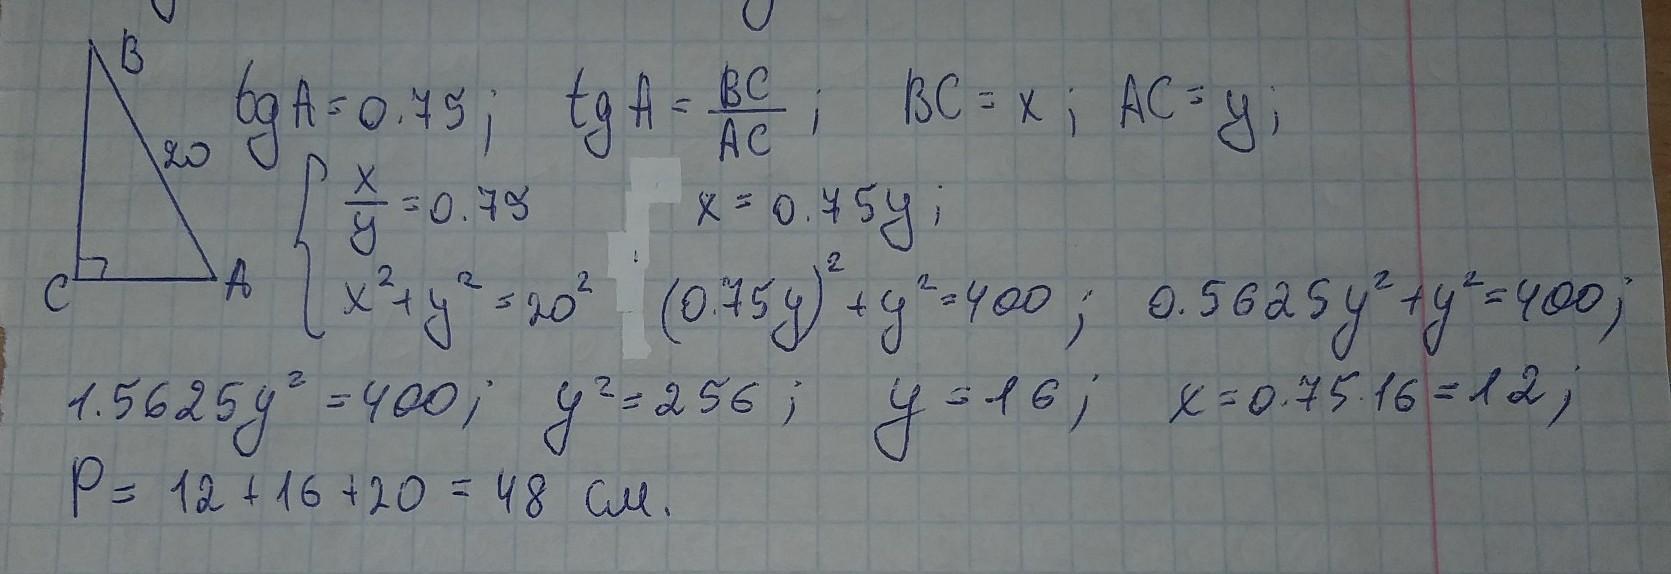 B
tg A = 0.75; tg A = BC/AC; BC = x; AC = y;
20
x/y = 0.75 x = 0.75y;
C A
x² + y² = 20² (0.75y)² + y² = 400; 0.5625y² + y² = 400;
1.5625y² = 400; y² = 256; y = 16; x = 0.75·16 = 12;
P = 12 + 16 + 20 = 48 см.